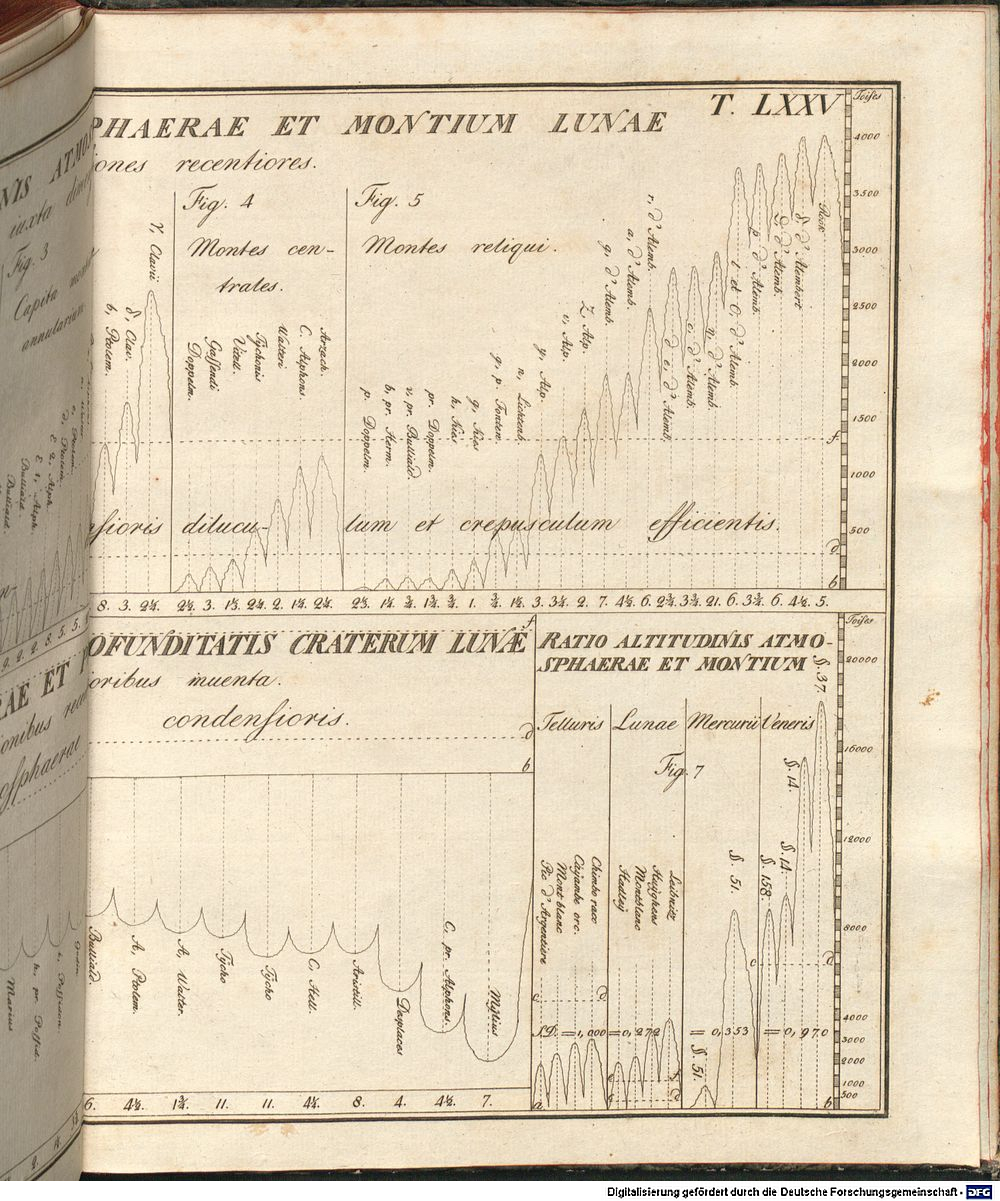 T. LXXV
Toises
PHAERAE ET MONTIUM LUNAE
iones recentiores.
Fig. 4
Montes cen-
trales.
Fig. 5
Montes reliqui.
4000
3500
3000
2500
2000
1500
1000
500
b, Ptolem.
δ, Clav.
γ, Clavii
Doppelm.
Gassendi
Vitell.
Tychonis
Walteri
C. Alphons.
Arzach.
p. Doppelm.
b, pr. Herm.
v, pr. Bulliald.
pr. Doppelm.
h, Kies
g, Kies
g, p. Fontan.
n, Lichtenb.
y, Alp.
v, Alp.
Z, Alp.
g, d'Alemb.
a, d'Alemb.
r, d'Alemb.
d e, d'Alemb.
c, d'Alemb.
η, d'Alemb.
t et O, d'Alemb.
p d'Alemb.
G, d'Alemb.
δ d'Alembert
f
d
b
nsioris dilucu- lum et crepusculum efficientis.
8. 3. 2¼. 2½. 3. 1½. 2¼. 2. 1½. 2¼. 2½. 1¼. ¾. 1¾. ¾. 1. ¾. 1½. 3. 3¼. 2. 7. 4½. 6. 2¾. 3¾. 21. 6. 3¾. 6. 4½. 5.
OFUNDITATIS CRATERUM LUNÆ
f
oribus inuenta.
condensioris.
d
b
Bulliald.
A, Ptolem.
A, Walter.
Tycho
Tycho
C, Hell.
Aristill.
Daplaces
C, pr. Alphons.
Mylius
6. 4½. 1¾. 11. 11. 4¼. 8. 4. 4½. 7.
RATIO ALTITUDINIS ATMO-
SPHAERAE ET MONTIUM
Toises
Telluris Lunae Mercurii Veneris
Fig. 7
20000
16000
12000
8000
4000
3000
2000
1000
500
Pic d'Argentiere
Mont blanc
Cajambe orc.
Chimbo raco
Hadleij
Montblanc
Huighens
Leibnitz
§. 51.
§. 51.
§. 158.
§. 14.
§. 14.
§. 37.
c
d
c
d
= 1,000
= 0,272
= 0,353
= 0,970
a
b
Fig. 3
Capita
annularium
iuxta
Marius
Digitalisierung gefördert durch die Deutsche Forschungsgemeinschaft - DFG